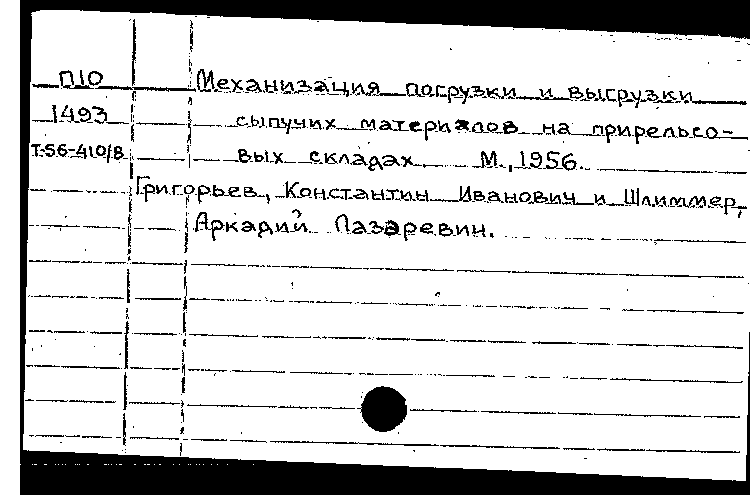 П10 Механизация погрузки и выгрузки
1493 сыпучих материалов на прирельсо-
Т-56-410/8 вых складах. М., 1956.
Григорьев, Константин Иванович и Шлиммер,
Аркадий Лазаревич.